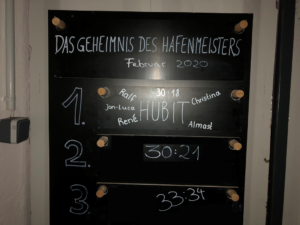 DAS GEHEIMNIS DES HAFENMEISTERS
Februar 2020
1. 30:18
Ralf Christina
Jan-Luca HUBIT
René Almast
2. 30:21
3. 33:34